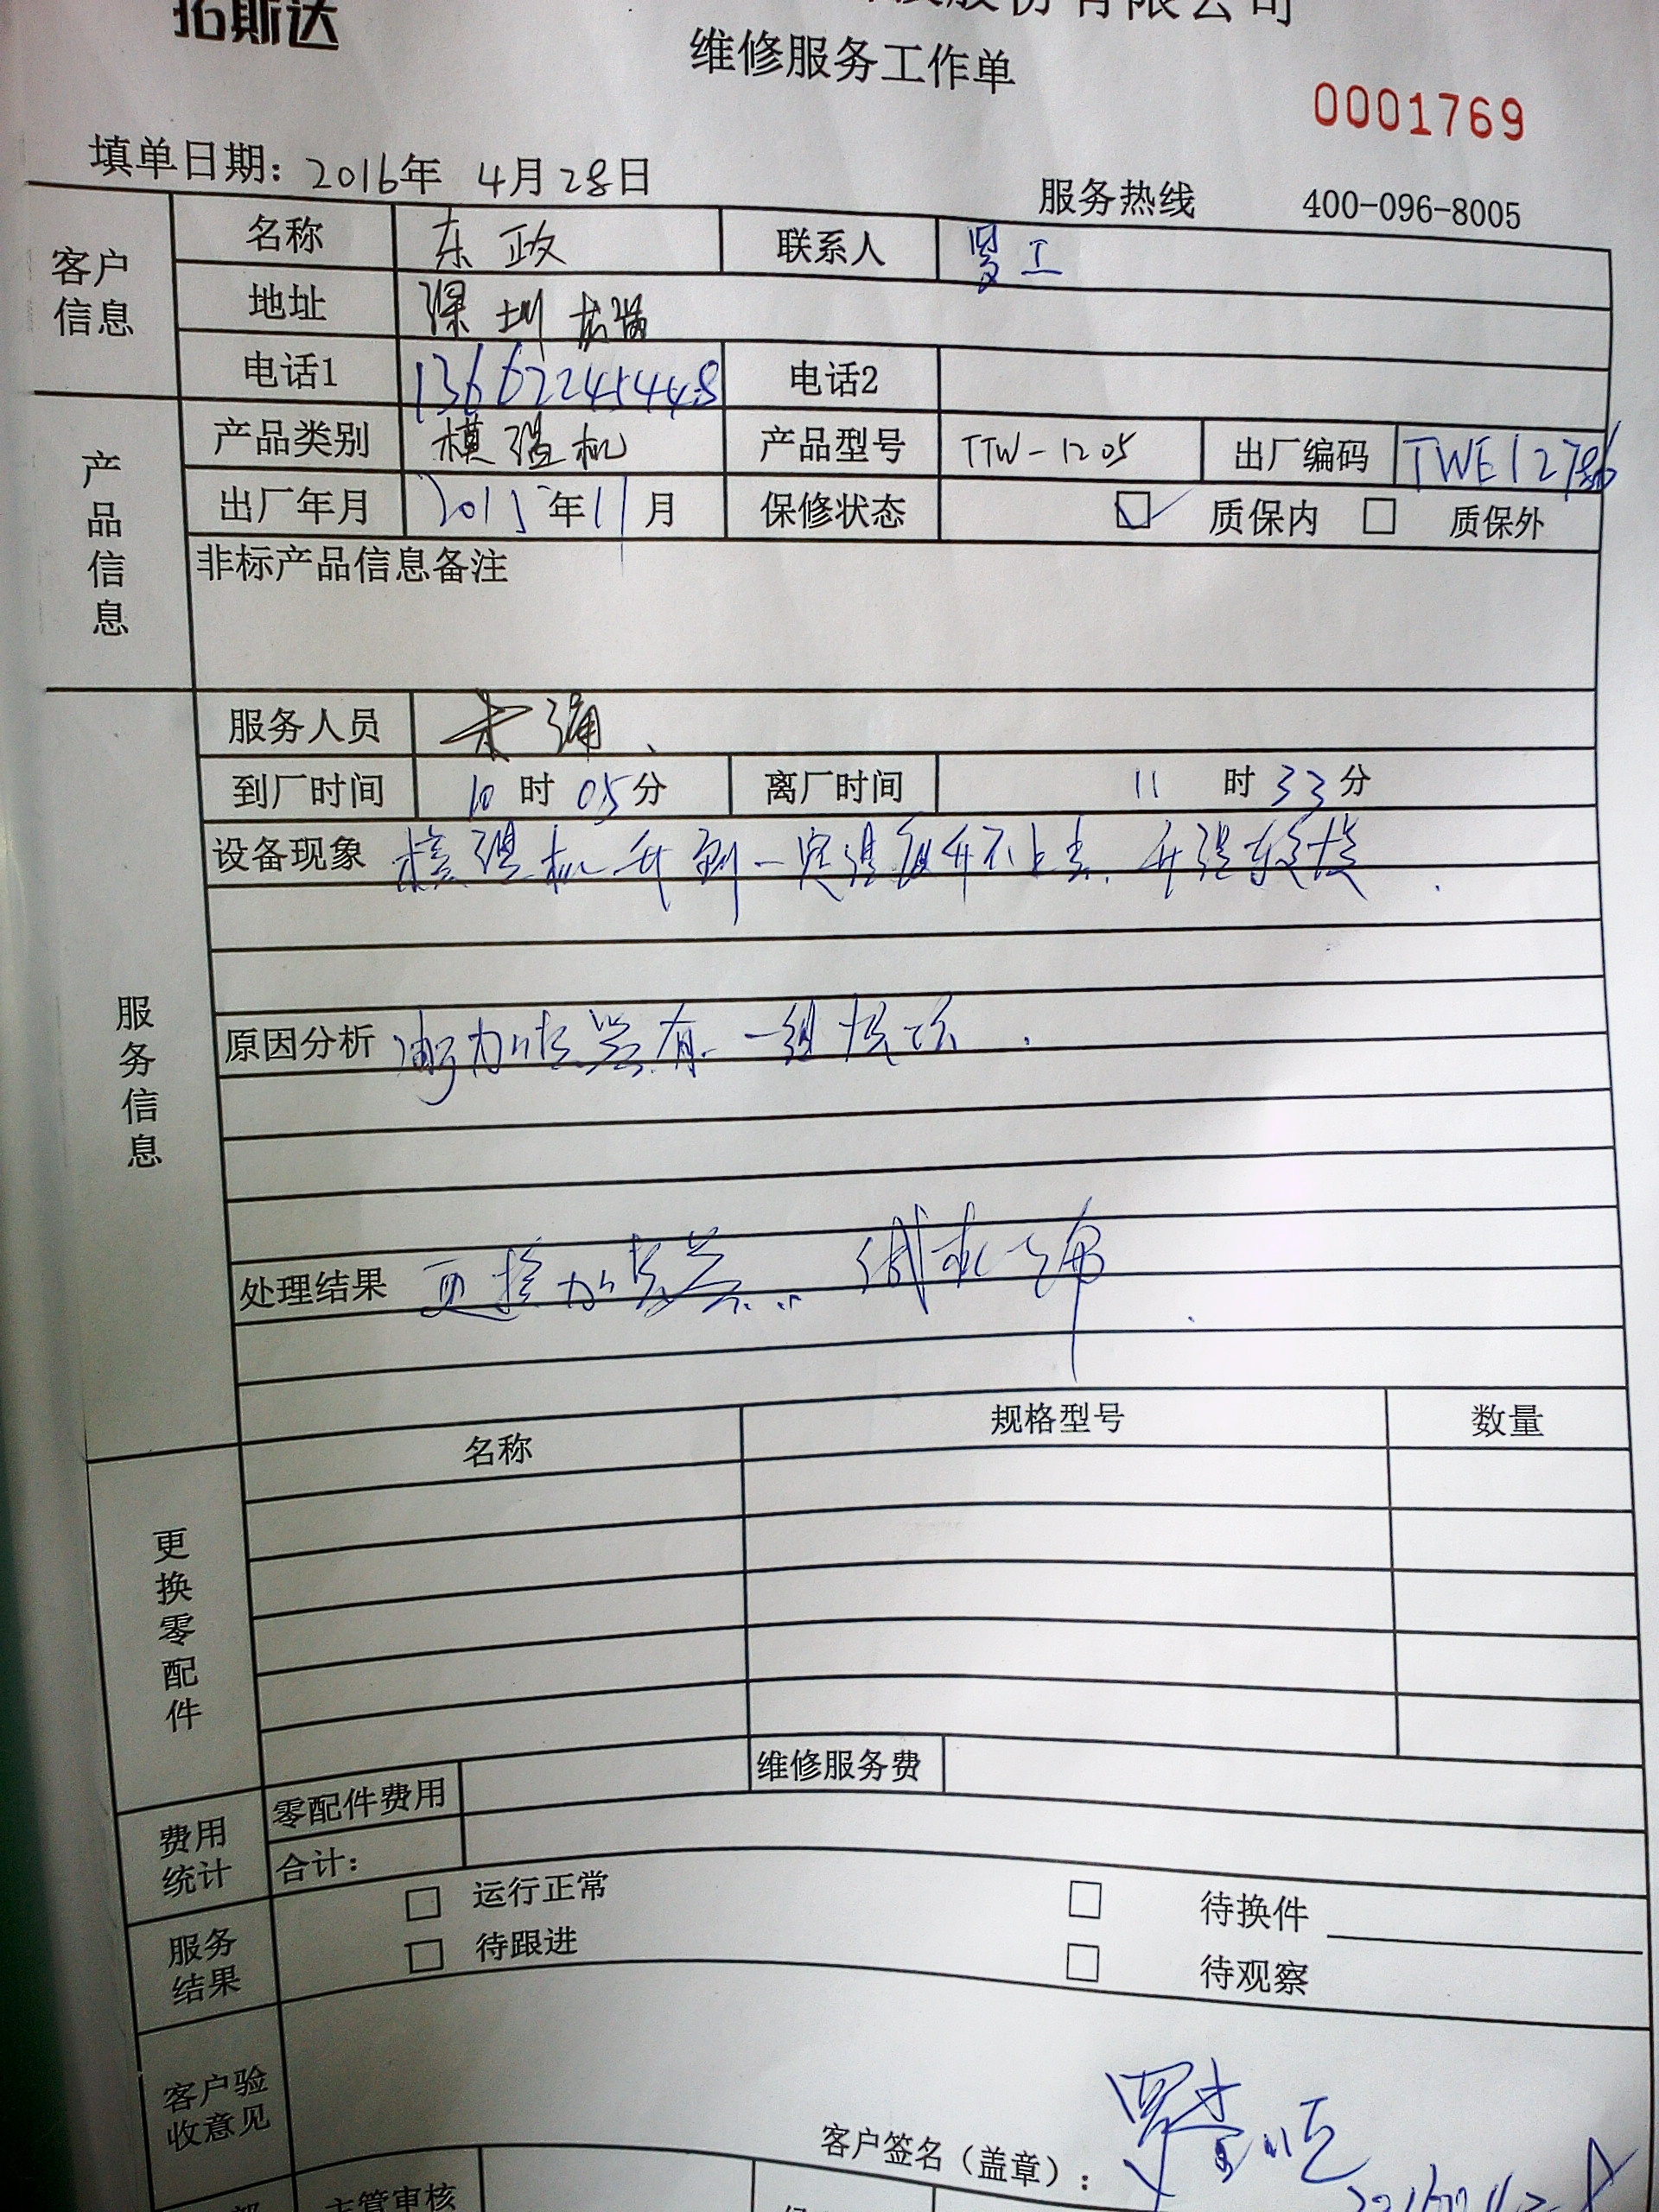 拓斯达
股份有限公司
维修服务工作单
0001769
填单日期：2016年 4月28日
服务热线 400-096-8005
客户信息
名称 东政 联系人 罗工
地址 深圳
电话1 13662245448 电话2
产品信息
产品类别 模温机 产品型号 TTW-1205 出厂编码 TWE12786
出厂年月 2015年11月 保修状态 质保内 质保外
非标产品信息备注
服务信息
服务人员
到厂时间 10时05分 离厂时间 11时33分
设备现象 模温机升到一定温度升不上去，升温较慢
原因分析 加热器有一组损坏
处理结果 更换加热器
名称 规格型号 数量
更换零配件
零配件费用 维修服务费
费用统计
合计：
运行正常 待换件
服务结果
待跟进 待观察
客户验收意见
客户签名（盖章）：
主管审核